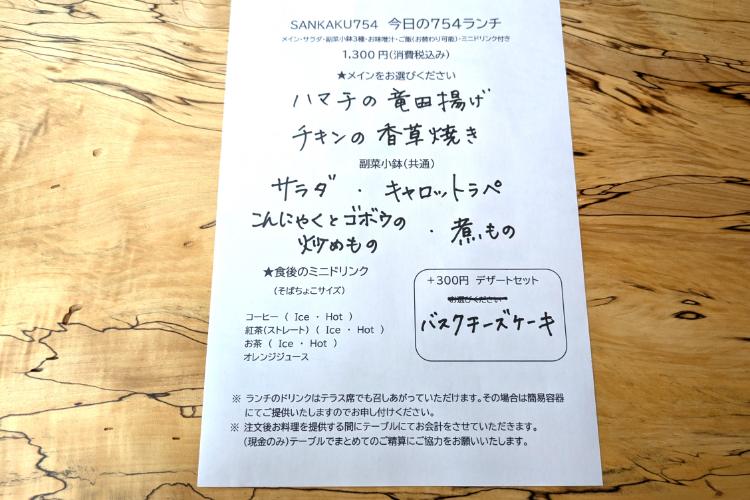 SANKAKU754 今日の754ランチ
メイン・サラダ・副菜小鉢3種・お味噌汁・ご飯(お替わり可能)・ミニドリンク付き
1,300円(消費税込み)
★メインをお選びください
ハマチの竜田揚げ
チキンの香草焼き
副菜小鉢(共通)
サラダ ・ キャロットラペ
こんにゃくとゴボウの
炒めもの ・ 煮もの
★食後のミニドリンク
(そばちょこサイズ)
コーヒー ( Ice ・ Hot )
紅茶(ストレート) ( Ice ・ Hot )
お茶 ( Ice ・ Hot )
オレンジジュース
+300円 デザートセット
お選びください
バスクチーズケーキ
※ ランチのドリンクはテラス席でも召しあがっていただけます。その場合は簡易容器
にてご提供いたしますのでお申し付けください。
※ 注文後お料理を提供する間にテーブルにてお会計をさせていただきます。
(現金のみ)テーブルでまとめてのご精算にご協力をお願いいたします。